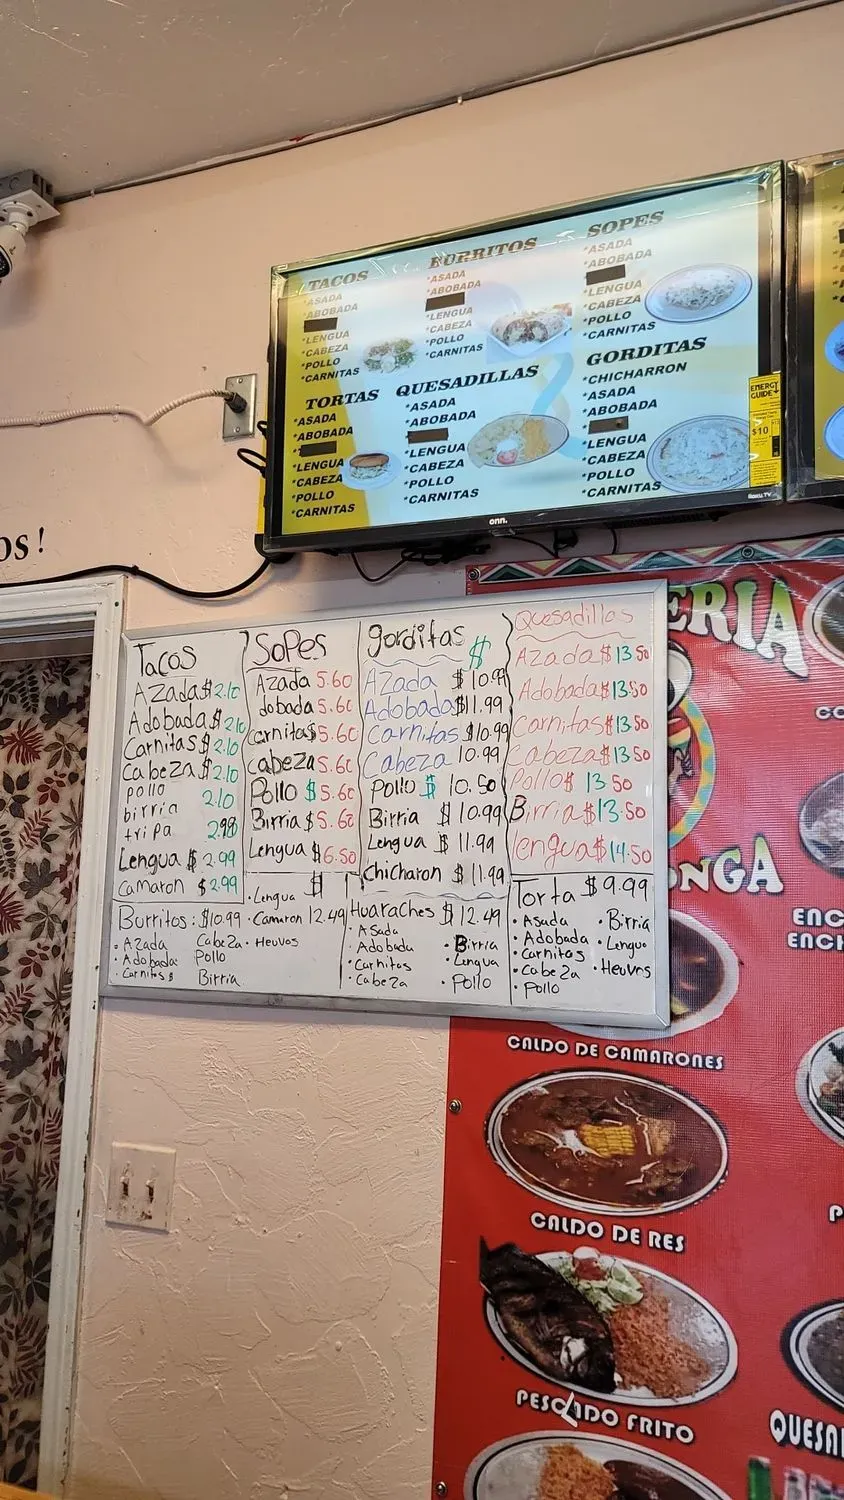 OS!
TACOS
*ASADA
*ABOBADA
*LENGUA
*CABEZA
*POLLO
*CARNITAS
BURRITOS
*ASADA
*ABOBADA
*LENGUA
*CABEZA
*POLLO
*CARNITAS
SOPES
*ASADA
*ABOBADA
*LENGUA
*CABEZA
*POLLO
*CARNITAS
TORTAS
*ASADA
*ABOBADA
*LENGUA
*CABEZA
*POLLO
*CARNITAS
QUESADILLAS
*ASADA
*ABOBADA
*LENGUA
*CABEZA
*POLLO
*CARNITAS
GORDITAS
*CHICHARRON
*ASADA
*ABOBADA
*LENGUA
*CABEZA
*POLLO
*CARNITAS
ENERGY
GUIDE
$10
onn.
Roku TV
Tacos
Azada $ 2.10
Adobada $ 2.10
Carnitas $ 2.10
Cabeza $ 2.10
pollo 2.10
birria
tripa 2.99
Lengua $ 2.99
Camaron $ 2.99
Sopes
Azada 5.60
dobada 5.60
Carnitas $5.60
Cabeza 5.60
Pollo $ 5.60
Birria $ 5.60
Lengua $6.50
gorditas $
Azada $ 10.99
Adobada $11.99
Carnitas $10.99
Cabeza 10.99
Pollo $ 10.50
Birria $ 10.99
Lengua $ 11.99
Chicharon $ 11.99
Quesadillas
Azada $ 13.50
Adobada $13.50
Carnitas $13.50
Cabeza $13.50
Pollo $ 13 50
Birria $13.50
lengua $14.50
Burritos: $10.99
• Azada
• Adobada
• Carnitas
Cabeza
Pollo
Birria
• Lengua $
• Camaron 12.49
• Heuvos
Huaraches $ 12.49
• Asada
• Adobada
• Carnitas
• Cabeza
• Birria
• Lengua
• Pollo
Torta $ 9.99
• Asada
• Adobada
• Carnitas
• Cabeza
• Pollo
• Birria
• Lengua
• Heuvos
ERIA
NGA
CO
ENC
ENCH
CALDO DE CAMARONES
CALDO DE RES
P
PESCADO FRITO
QUESA